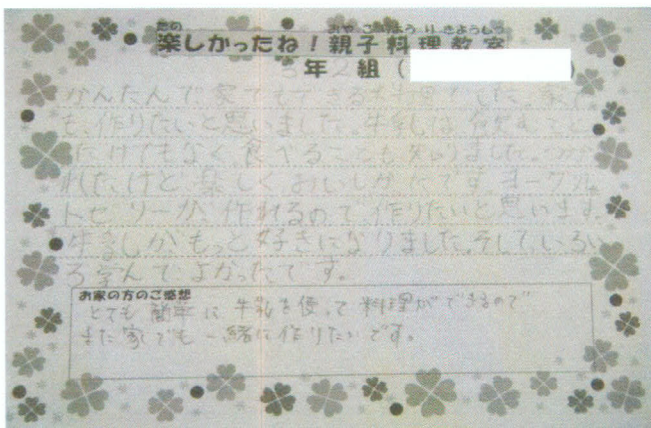 たの おやこりょうりきょうしつ
楽しかったね！親子料理教室
3年2組（ ）
かんたんで家でもできる料理でした。家で
も、作りたいと思いました。牛乳は、飲むこと
だけでもなく、食べることも知りました。つか
れたけど、楽しく、おいしかったです。ヨーグル
トゼリーが、作れるので、作りたいと思います。
牛乳がもっと好きになりました。そして、いろい
ろ学んでよかったです。
お家の方のご感想
とても簡単に牛乳を使って料理ができるので
また家でも一緒に作りたいです。